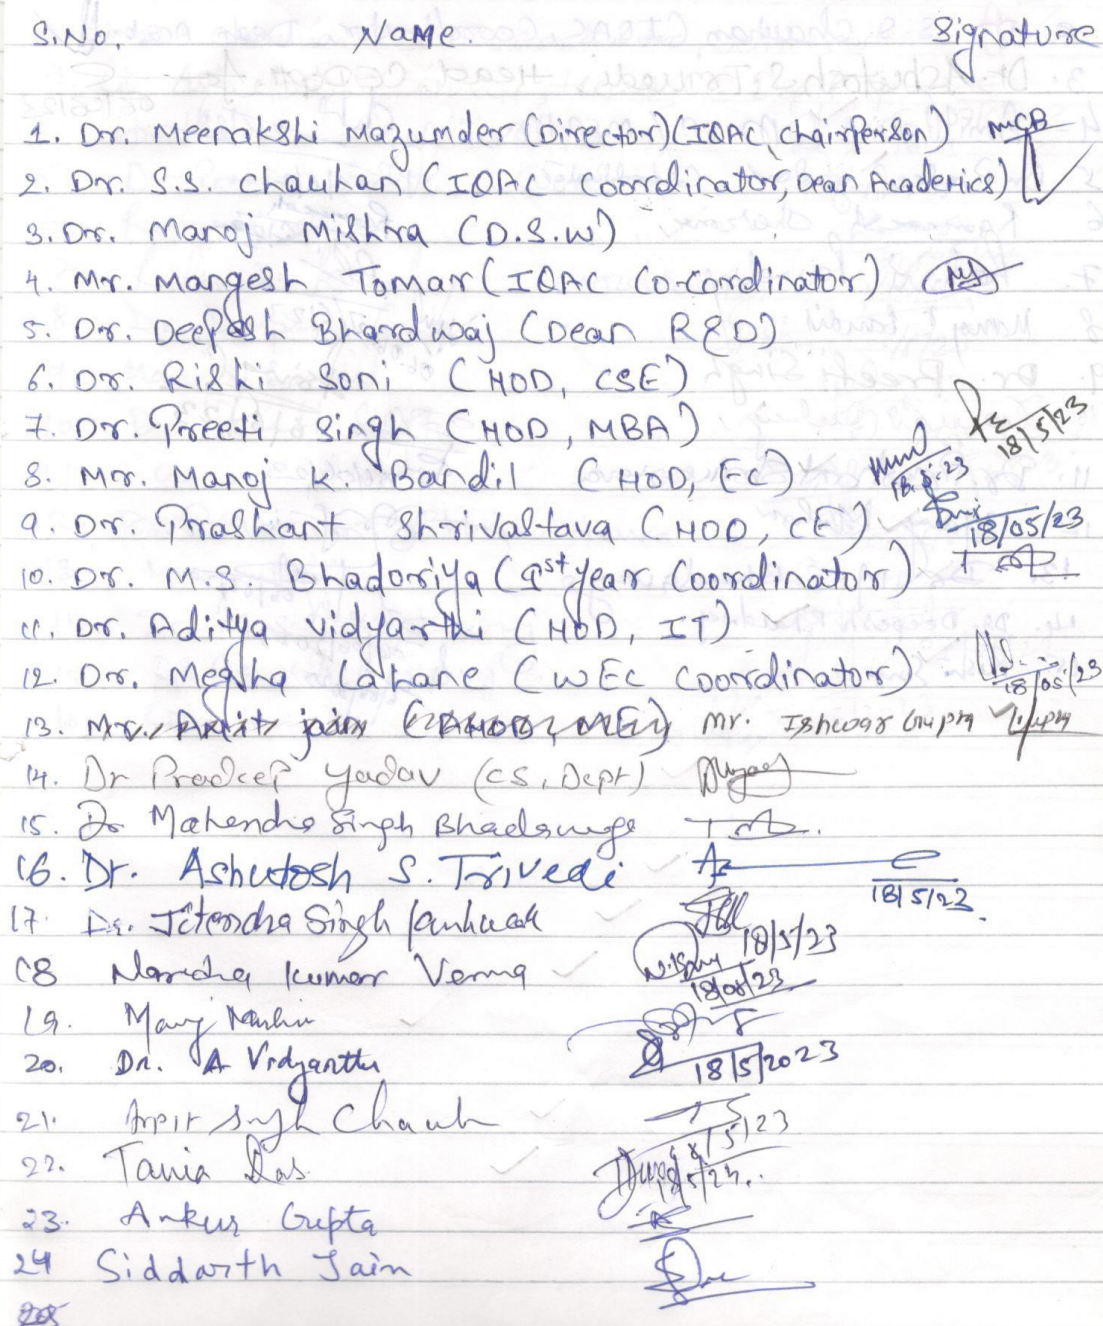 S.No. Name. Signature
1. Dr. Meenakshi Mazumder (Director) (IQAC, chairperson)
2. Dr. S.S. Chauhan (IQAC Coordinator, Dean Academics)
3. Dr. Manoj Mishra (D.S.W)
4. Mr. Mangesh Tomar (IQAC Co-cordinator)
5. Dr. Deepesh Bhardwaj (Dean R&D)
6. Dr. Rishi Soni (HOD, CSE)
7. Dr. Preeti Singh (HOD, MBA) 18/5/23
8. Mr. Manoj K. Bandil (HOD, EC) 18.5.23
9. Dr. Prashant Shrivastava (HOD, CE) 18/05/23
10. Dr. M.S. Bhadoriya (1st year Coordinator)
11. Dr. Aditya Vidyarthi (HOD, IT)
12. Dr. Megha Lahane (WEC Coordinator) 18/05/23
13. Mr. Amit jain (AHOD, ME) mr. Ishwar Gupta
14. Dr Pradeep Yadav (CS, Dept)
15. Dr Mahendra Singh
16. Dr. Ashutosh S. Trivedi 18/5/23.
17. Dr. Jitendra Singh 18/5/23
18 Narendra Kumar Verma 18/05/23
19.
20. Dr. A Vidyarthi 18/5/2023
21. Arpit Singh Chauh 18/5/23
22. Tania Das.
23. Ankur Gupta
24 Siddarth Jain